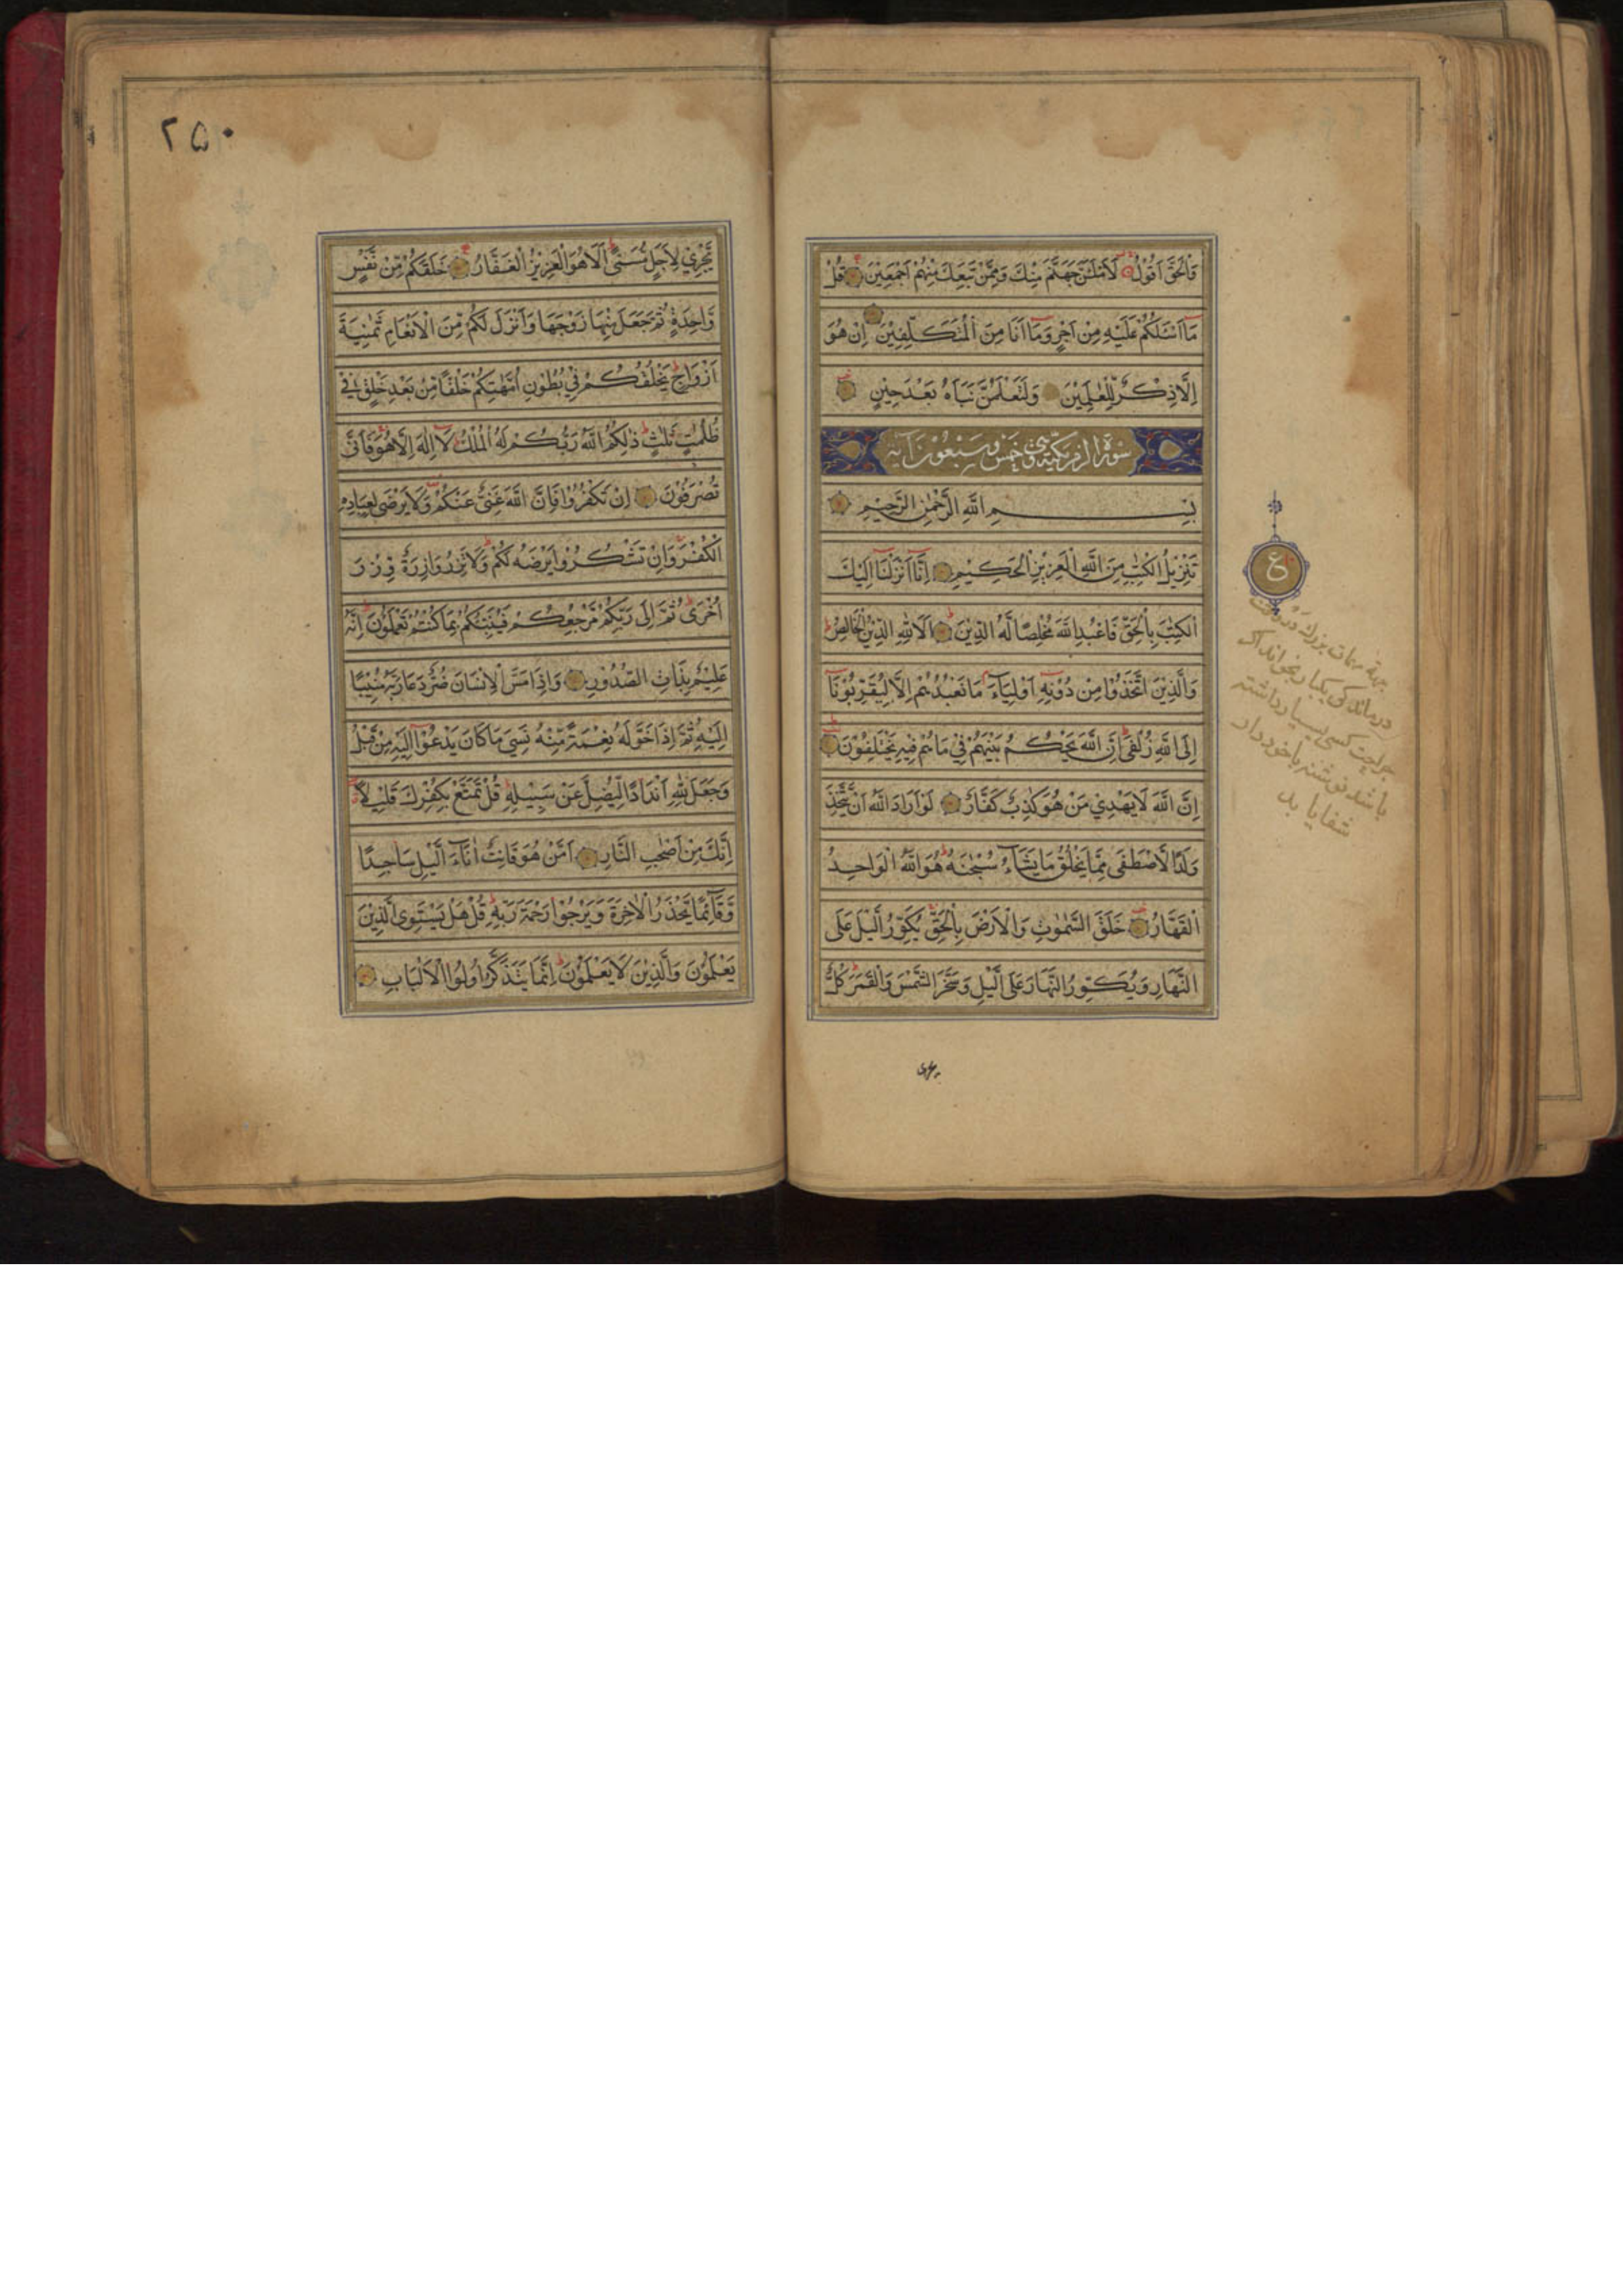 وَالْحَقَّ اَقُوْلُ لَاَمْلَئَنَّ جَهَنَّمَ مِنْكَ وَمِمَّنْ تَبِعَكَ مِنْهُمْ اَجْمَعِيْنَ قُلْ
مَا اَسْئَلُكُمْ عَلَيْهِ مِنْ اَجْرٍ وَمَا اَنَا مِنَ الْمُتَكَلِّفِيْنَ اِنْ هُوَ
اِلَّا ذِكْرٌ لِّلْعٰلَمِيْنَ وَلَتَعْلَمُنَّ نَبَاَهُ بَعْدَ حِيْنٍ
سورة الزمر مكية وهى خمس وسبعون آية
بِسْمِ اللّٰهِ الرَّحْمٰنِ الرَّحِيْمِ
تَنْزِيْلُ الْكِتٰبِ مِنَ اللّٰهِ الْعَزِيْزِ الْحَكِيْمِ اِنَّا اَنْزَلْنَا اِلَيْكَ
الْكِتٰبَ بِالْحَقِّ فَاعْبُدِ اللّٰهَ مُخْلِصًا لَّهُ الدِّيْنَ اَلَا لِلّٰهِ الدِّيْنُ الْخَالِصُ
وَالَّذِيْنَ اتَّخَذُوْا مِنْ دُوْنِهٖ اَوْلِيَاءَ مَا نَعْبُدُهُمْ اِلَّا لِيُقَرِّبُوْنَا
اِلَى اللّٰهِ زُلْفٰى اِنَّ اللّٰهَ يَحْكُمُ بَيْنَهُمْ فِيْ مَا هُمْ فِيْهِ يَخْتَلِفُوْنَ
اِنَّ اللّٰهَ لَا يَهْدِيْ مَنْ هُوَ كٰذِبٌ كَفَّارٌ لَوْ اَرَادَ اللّٰهُ اَنْ يَّتَّخِذَ
وَلَدًا لَّاصْطَفٰى مِمَّا يَخْلُقُ مَا يَشَاءُ سُبْحٰنَهٗ هُوَ اللّٰهُ الْوَاحِدُ
الْقَهَّارُ خَلَقَ السَّمٰوٰتِ وَالْاَرْضَ بِالْحَقِّ يُكَوِّرُ الَّيْلَ عَلَى
النَّهَارِ وَيُكَوِّرُ النَّهَارَ عَلَى الَّيْلِ وَسَخَّرَ الشَّمْسَ وَالْقَمَرَ كُلٌّ
ع
درماندكى يكبار بخواند
جراحت كسى بسيار داشته
باشد نوشته با خود دارد
شفا يابد
يجرى
٢٥٠
يَّجْرِيْ لِاَجَلٍ مُّسَمًّى اَلَا هُوَ الْعَزِيْزُ الْغَفَّارُ خَلَقَكُمْ مِّنْ نَّفْسٍ
وَّاحِدَةٍ ثُمَّ جَعَلَ مِنْهَا زَوْجَهَا وَاَنْزَلَ لَكُمْ مِّنَ الْاَنْعَامِ ثَمٰنِيَةَ
اَزْوَاجٍ يَخْلُقُكُمْ فِيْ بُطُوْنِ اُمَّهٰتِكُمْ خَلْقًا مِّنْ بَعْدِ خَلْقٍ فِيْ
ظُلُمٰتٍ ثَلٰثٍ ذٰلِكُمُ اللّٰهُ رَبُّكُمْ لَهُ الْمُلْكُ لَا اِلٰهَ اِلَّا هُوَ فَاَنّٰى
تُصْرَفُوْنَ اِنْ تَكْفُرُوْا فَاِنَّ اللّٰهَ غَنِيٌّ عَنْكُمْ وَلَا يَرْضٰى لِعِبَادِهِ
الْكُفْرَ وَاِنْ تَشْكُرُوْا يَرْضَهُ لَكُمْ وَلَا تَزِرُ وَازِرَةٌ وِّزْرَ
اُخْرٰى ثُمَّ اِلٰى رَبِّكُمْ مَّرْجِعُكُمْ فَيُنَبِّئُكُمْ بِمَا كُنْتُمْ تَعْمَلُوْنَ اِنَّهٗ
عَلِيْمٌ بِذَاتِ الصُّدُوْرِ وَاِذَا مَسَّ الْاِنْسَانَ ضُرٌّ دَعَا رَبَّهٗ مُنِيْبًا
اِلَيْهِ ثُمَّ اِذَا خَوَّلَهٗ نِعْمَةً مِّنْهُ نَسِيَ مَا كَانَ يَدْعُوْا اِلَيْهِ مِنْ قَبْلُ
وَجَعَلَ لِلّٰهِ اَنْدَادًا لِّيُضِلَّ عَنْ سَبِيْلِهٖ قُلْ تَمَتَّعْ بِكُفْرِكَ قَلِيْلًا
اِنَّكَ مِنْ اَصْحٰبِ النَّارِ اَمَّنْ هُوَ قَانِتٌ اٰنَاءَ الَّيْلِ سَاجِدًا
وَّقَائِمًا يَّحْذَرُ الْاٰخِرَةَ وَيَرْجُوْا رَحْمَةَ رَبِّهٖ قُلْ هَلْ يَسْتَوِى الَّذِيْنَ
يَعْلَمُوْنَ وَالَّذِيْنَ لَا يَعْلَمُوْنَ اِنَّمَا يَتَذَكَّرُ اُولُوا الْاَلْبَابِ